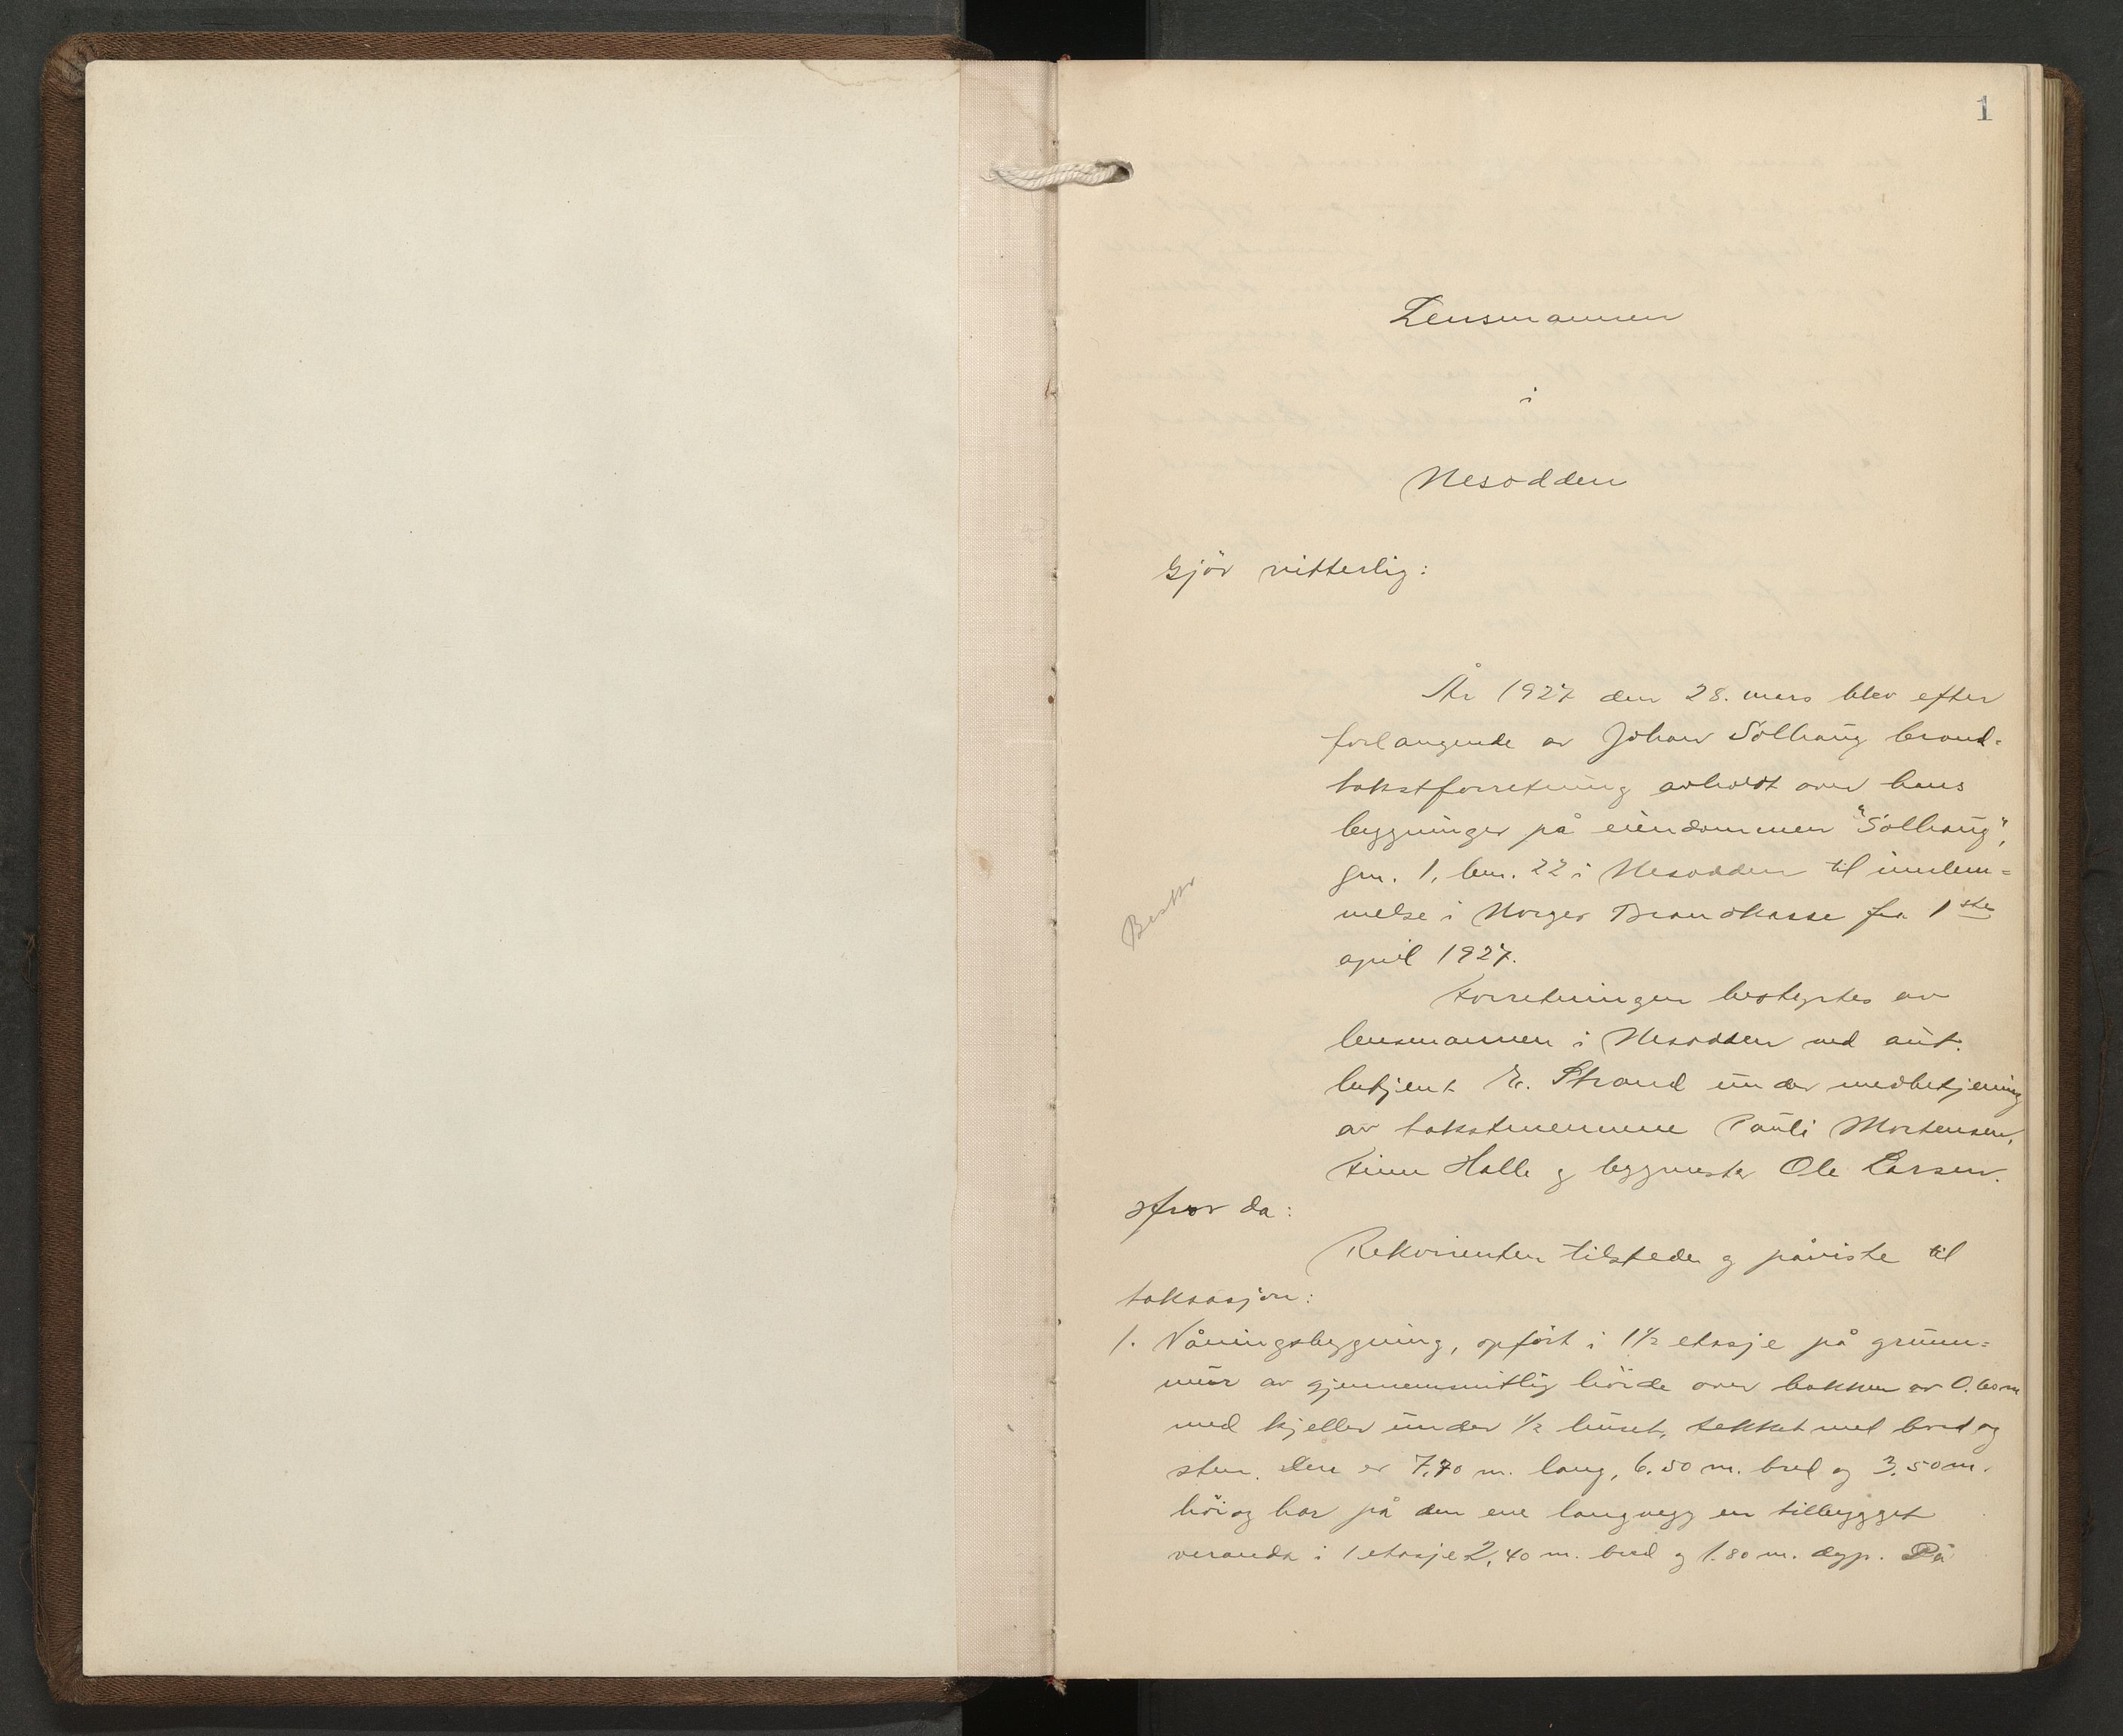 1
Lensmannen
i
Nesodden
Gjör vitterlig:
År 1927 den 28. mars blev efter
forlangende av Johan Solhaug brand-
takstforretning avholdt over hans
bygninger på eiendommen "Solhaug",
gnr. 1, bnr. 22 i Nesodden til innlem=
melse i Norges Brandkasse fra 1ste
april 1927.
Forretningen bestyrtes av
lensmannen i Nesodden ved aut.
betjent Strand under medbetjening
av takstmennene Pauli Mortensen,
Finn Halle og byggmester Ole Larsen.
Hvor da:
Rekvirenten tilstede og påviste til
taksasjon:
1. Våningsbygning, opført i 1½ etasje på grunn=
mur av gjennemsnitlig höide over bakken av 0.60 m
med kjeller under ½ huset, tekket med bord og
sten. Den er 7,70 m. lang, 6.50 m. bred og 3.50 m.
höi og har på den ene langvegg en tilbygget
veranda i 1 etasje 2,40 m. bred og 1.80 m. dyp. På